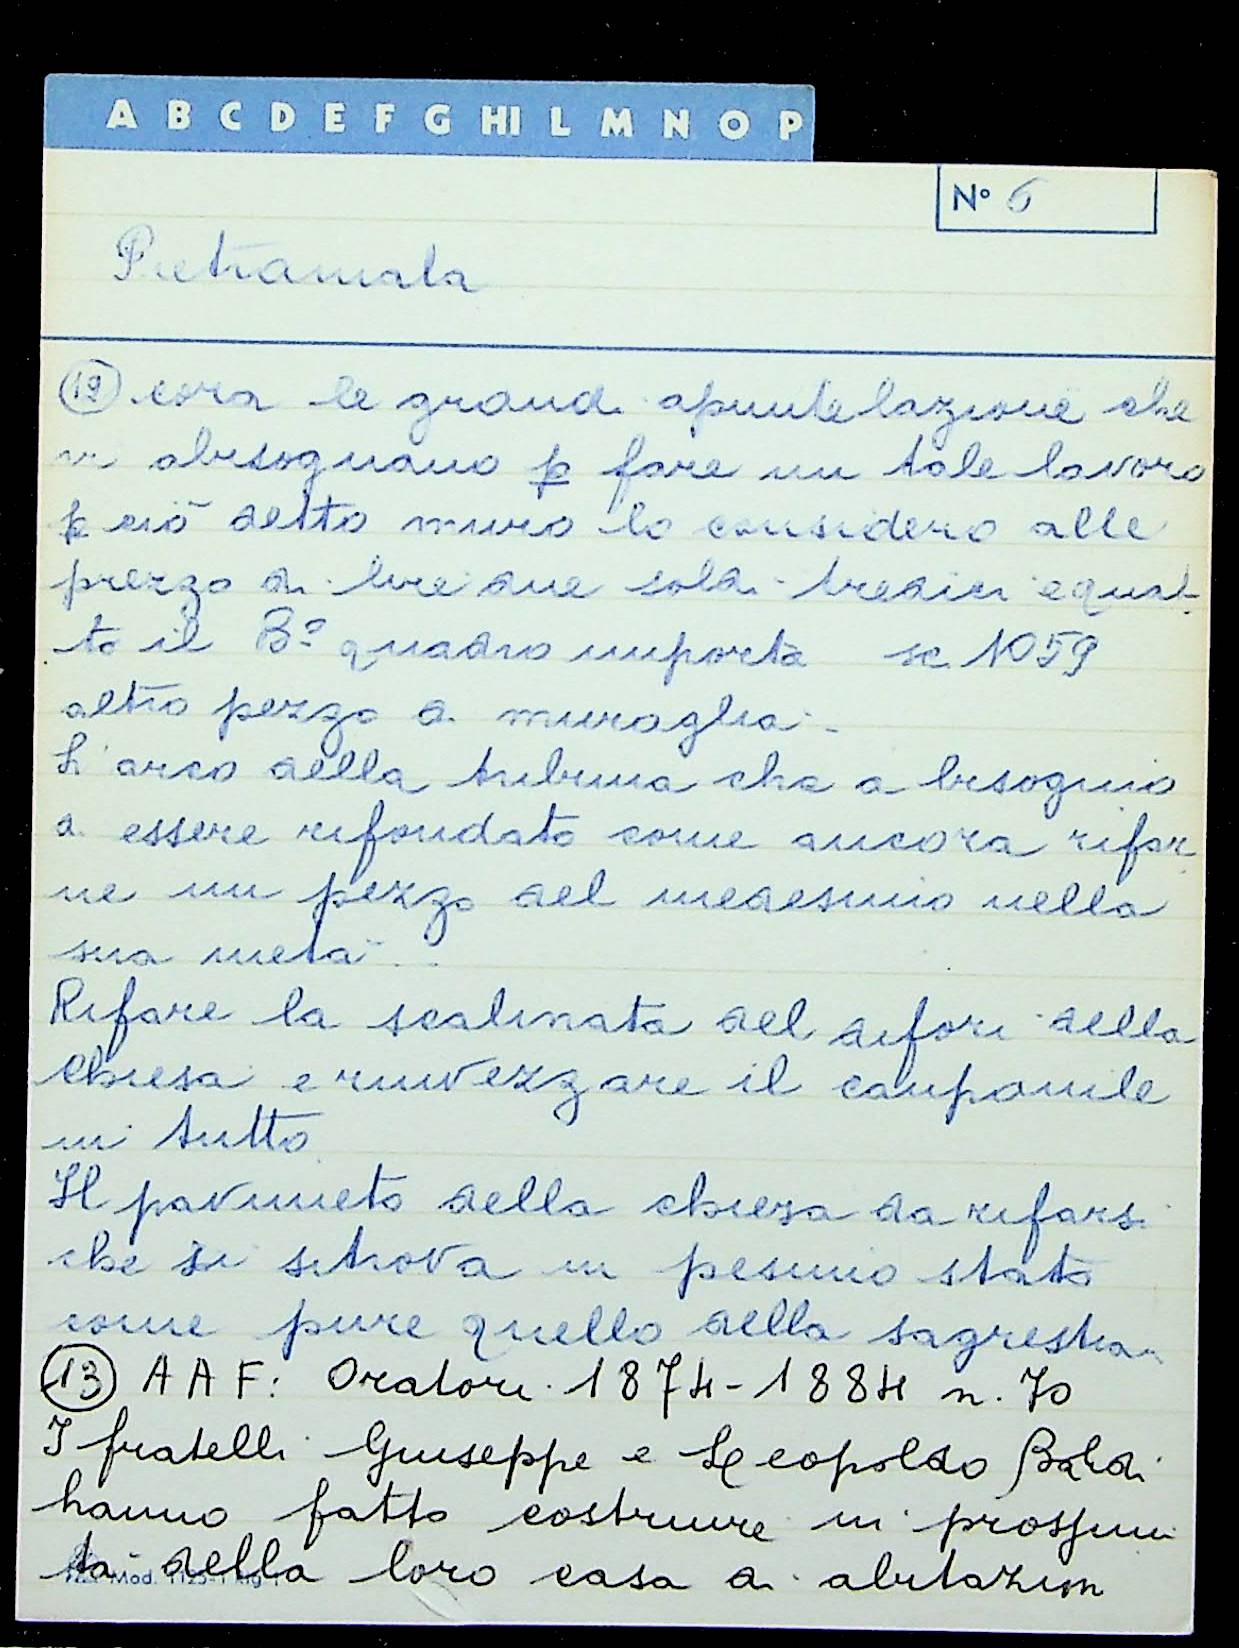 A B C D E F G HI L M N O P
N° 6
Pietramala
(12) cora le grandi apuntelazione che
vi abisognano p fare un tale lavoro
p ciò detto muro lo considero alle
prezzo di lire due soldi tredici e quat-
to il B° quadro importa sc. 1059
altro pezzo di muraglia.
L'arco della tribuna che a bisognio
di essere rifondato come ancora rifar
ne un pezzo del medesimo nella
sua metà..
Rifare la scalinata del difori della
chiesa e rinvezzare il campanile
in tutto
Il pavimeto della chiesa da rifarsi
che si sitrova in pesimo stato
come pure quello della sagrestia
(13) A A F: Oratori 1874-1884 n. 70
I fratelli Giuseppe e Leopoldo Baldi
hanno fatto costruire in prossimi
tà della loro casa di abitazion
Mod. 1125-1 Rig.